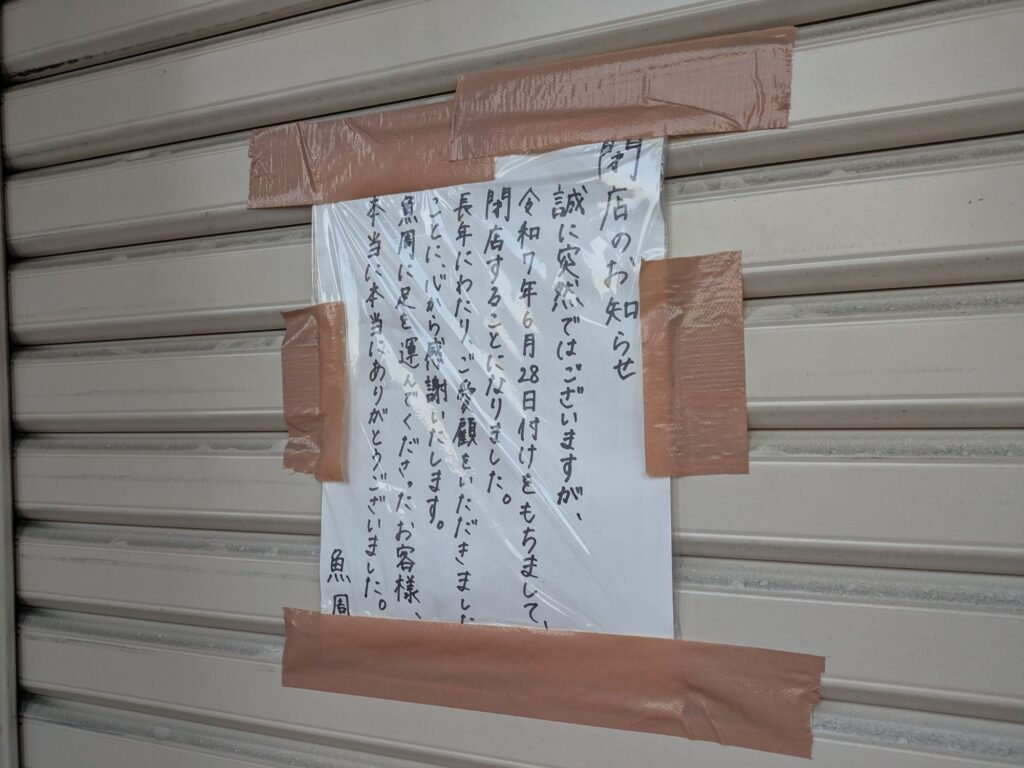 閉店のお知らせ
誠に突然ではございますが、
令和7年6月28日付けをもちまして、
閉店することになりました。
長年にわたり、ご愛顧をいただきました
ことに、心から感謝いたします。
魚周に足を運んでくださったお客様、
本当に本当にありがとうございました。
魚周